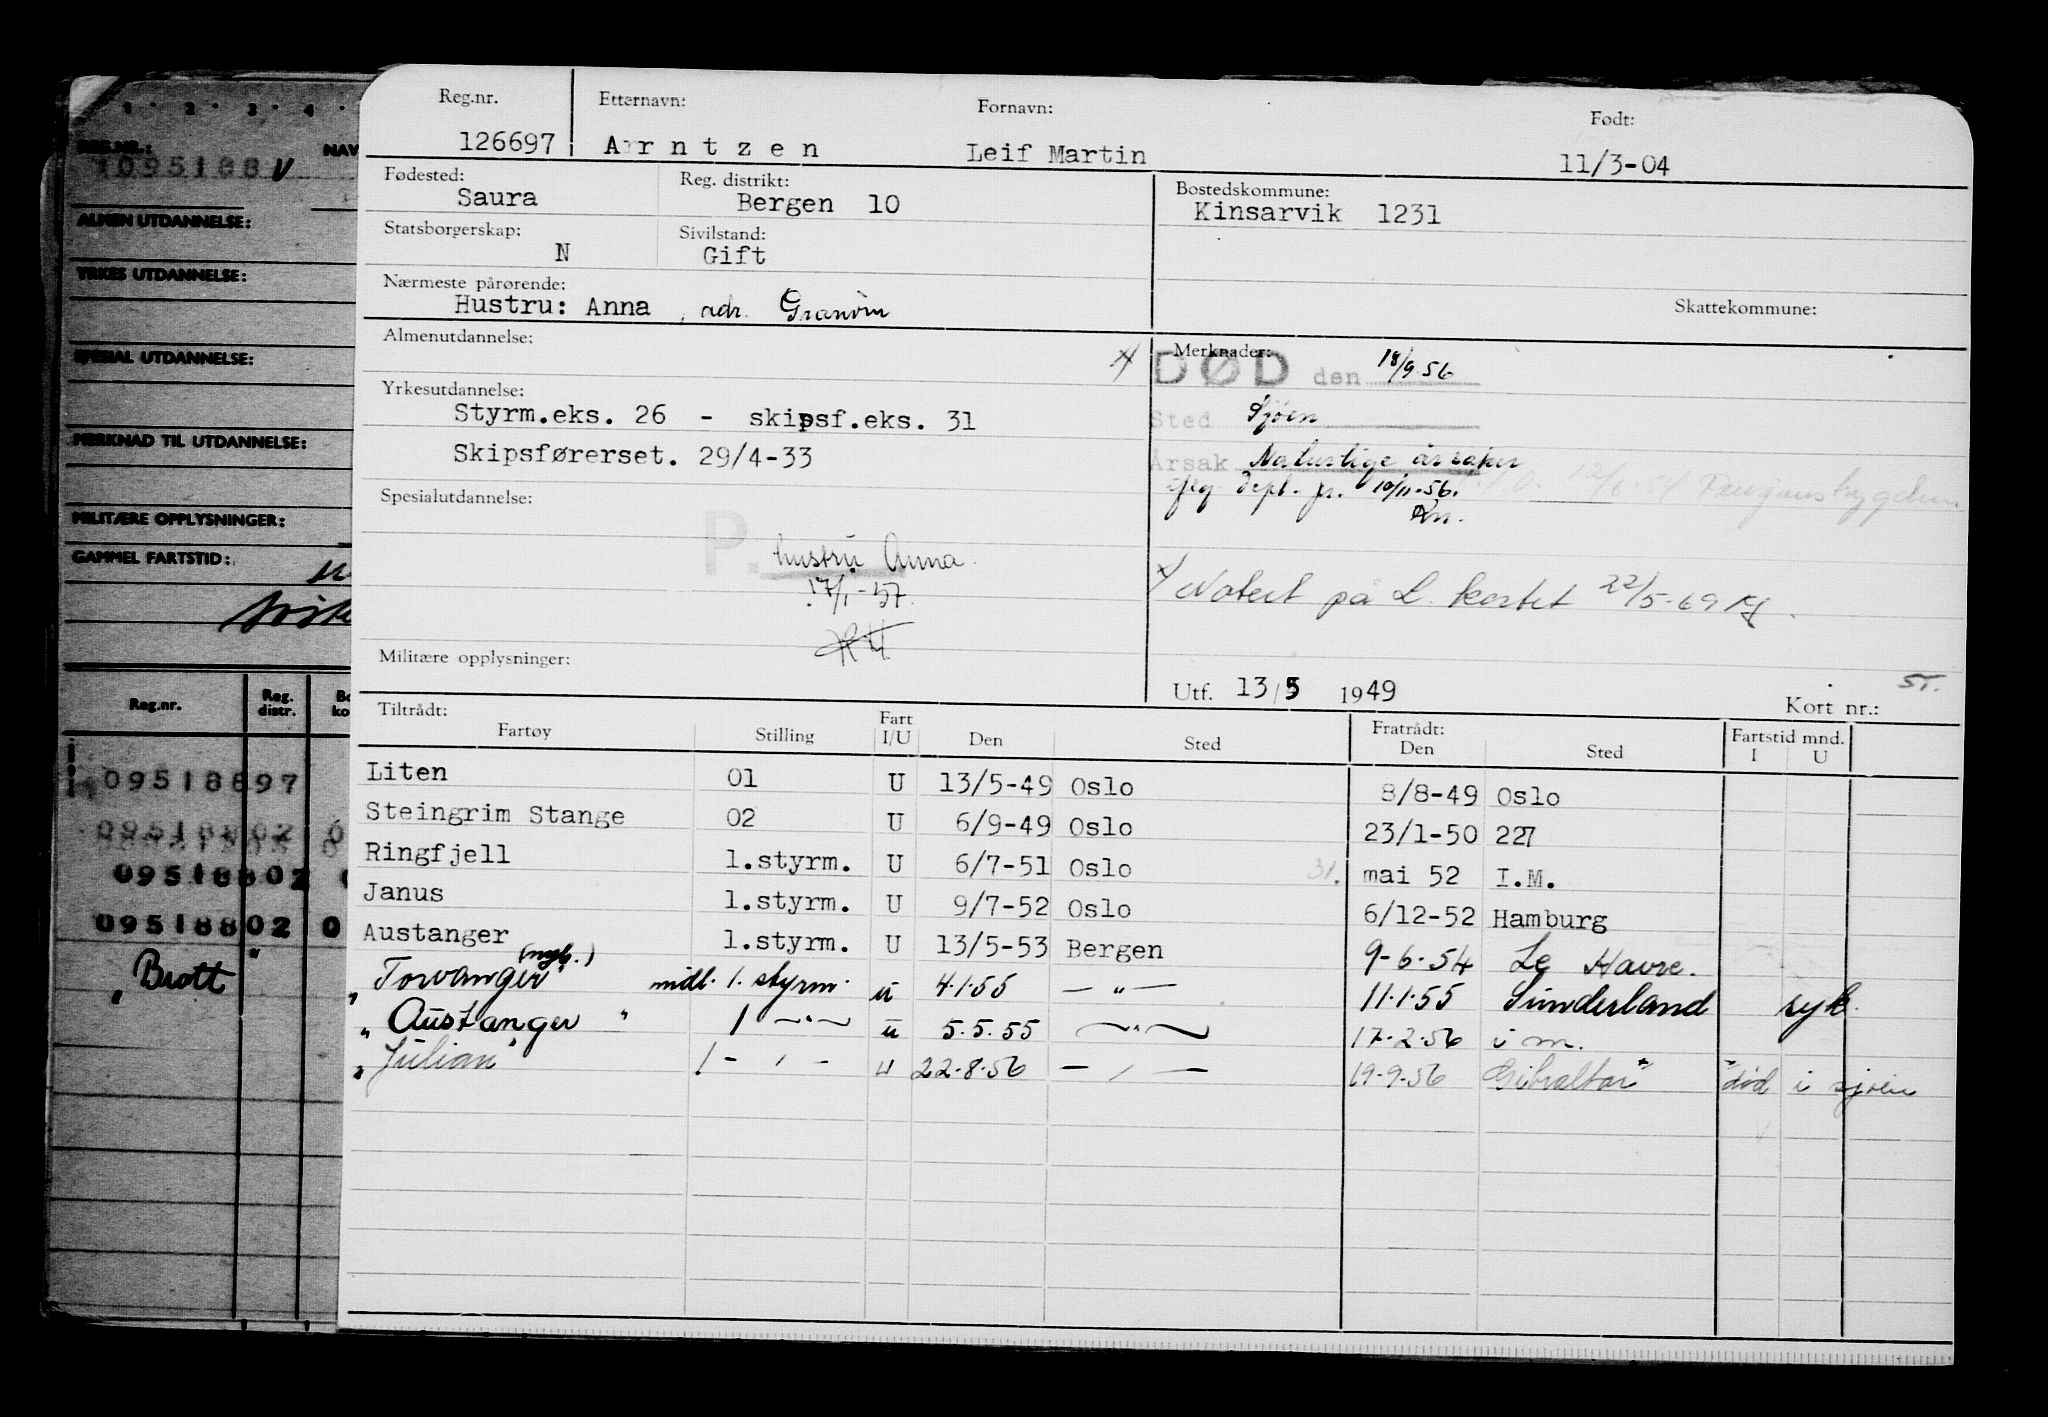 1 · 2 · 3 · 4 ·
REG.NR.: NAV
1095188 V
ALMEN UTDANNELSE:
YRKES UTDANNELSE:
SPESIAL UTDANNELSE:
MERKNAD TIL UTDANNELSE:
MILITÆRE OPPLYSNINGER:
GAMMEL FARTSTID:
Reg.nr. Reg. distr. Bo ko
09518897
09518802 0
09518802 0
09518802 0
"Brott"
Reg.nr. Etternavn: Fornavn: Født:
126697 Arntzen Leif Martin 11/3-04
Fødested: Reg. distrikt: Bostedskommune:
Saura Bergen 10 Kinsarvik 1231
Statsborgerskap: Sivilstand:
N Gift
Nærmeste pårørende: Skattekommune:
Hustru: Anna, adr. Granvin
Almenutdannelse: x) Merknader:
DØD den 18/9.56
Yrkesutdannelse:
Styrm.eks. 26 - skipsf.eks. 31 Sted Sjøen
Skipsførerset. 29/4-33 Årsak Naturlige årsaker
Spesialutdannelse: iflg. Dept. pr. 10/11-56.
P. hustru Anna
17/1-57. x) Notert på L. kortet 22/5-69
Militære opplysninger:
Utf. 13/5 1949 Kort nr.:
Tiltrådt: Fratrådt:
Fartøy Stilling Fart I/U Den Sted Den Sted Fartstid mnd. I U
Liten 01 U 13/5-49 Oslo 8/8-49 Oslo
Steingrim Stange 02 U 6/9-49 Oslo 23/1-50 227
Ringfjell 1.styrm. U 6/7-51 Oslo 31. mai 52 I.M.
Janus 1.styrm. U 9/7-52 Oslo 6/12-52 Hamburg
Austanger 1.styrm. U 13/5-53 Bergen 9-6-54 Le Havre.
(nyb.)
"Torvanger" midl. 1. styrm. u 4.1.55 — " — 11.1.55 Sunderland syk.
"Austanger" 1 — " — u 5.5.55 — " — 17.2.56 i m.
"Julian" 1 — " — u 22.8.56 — " — 19.9.56 Gibraltar" "død i sjøen